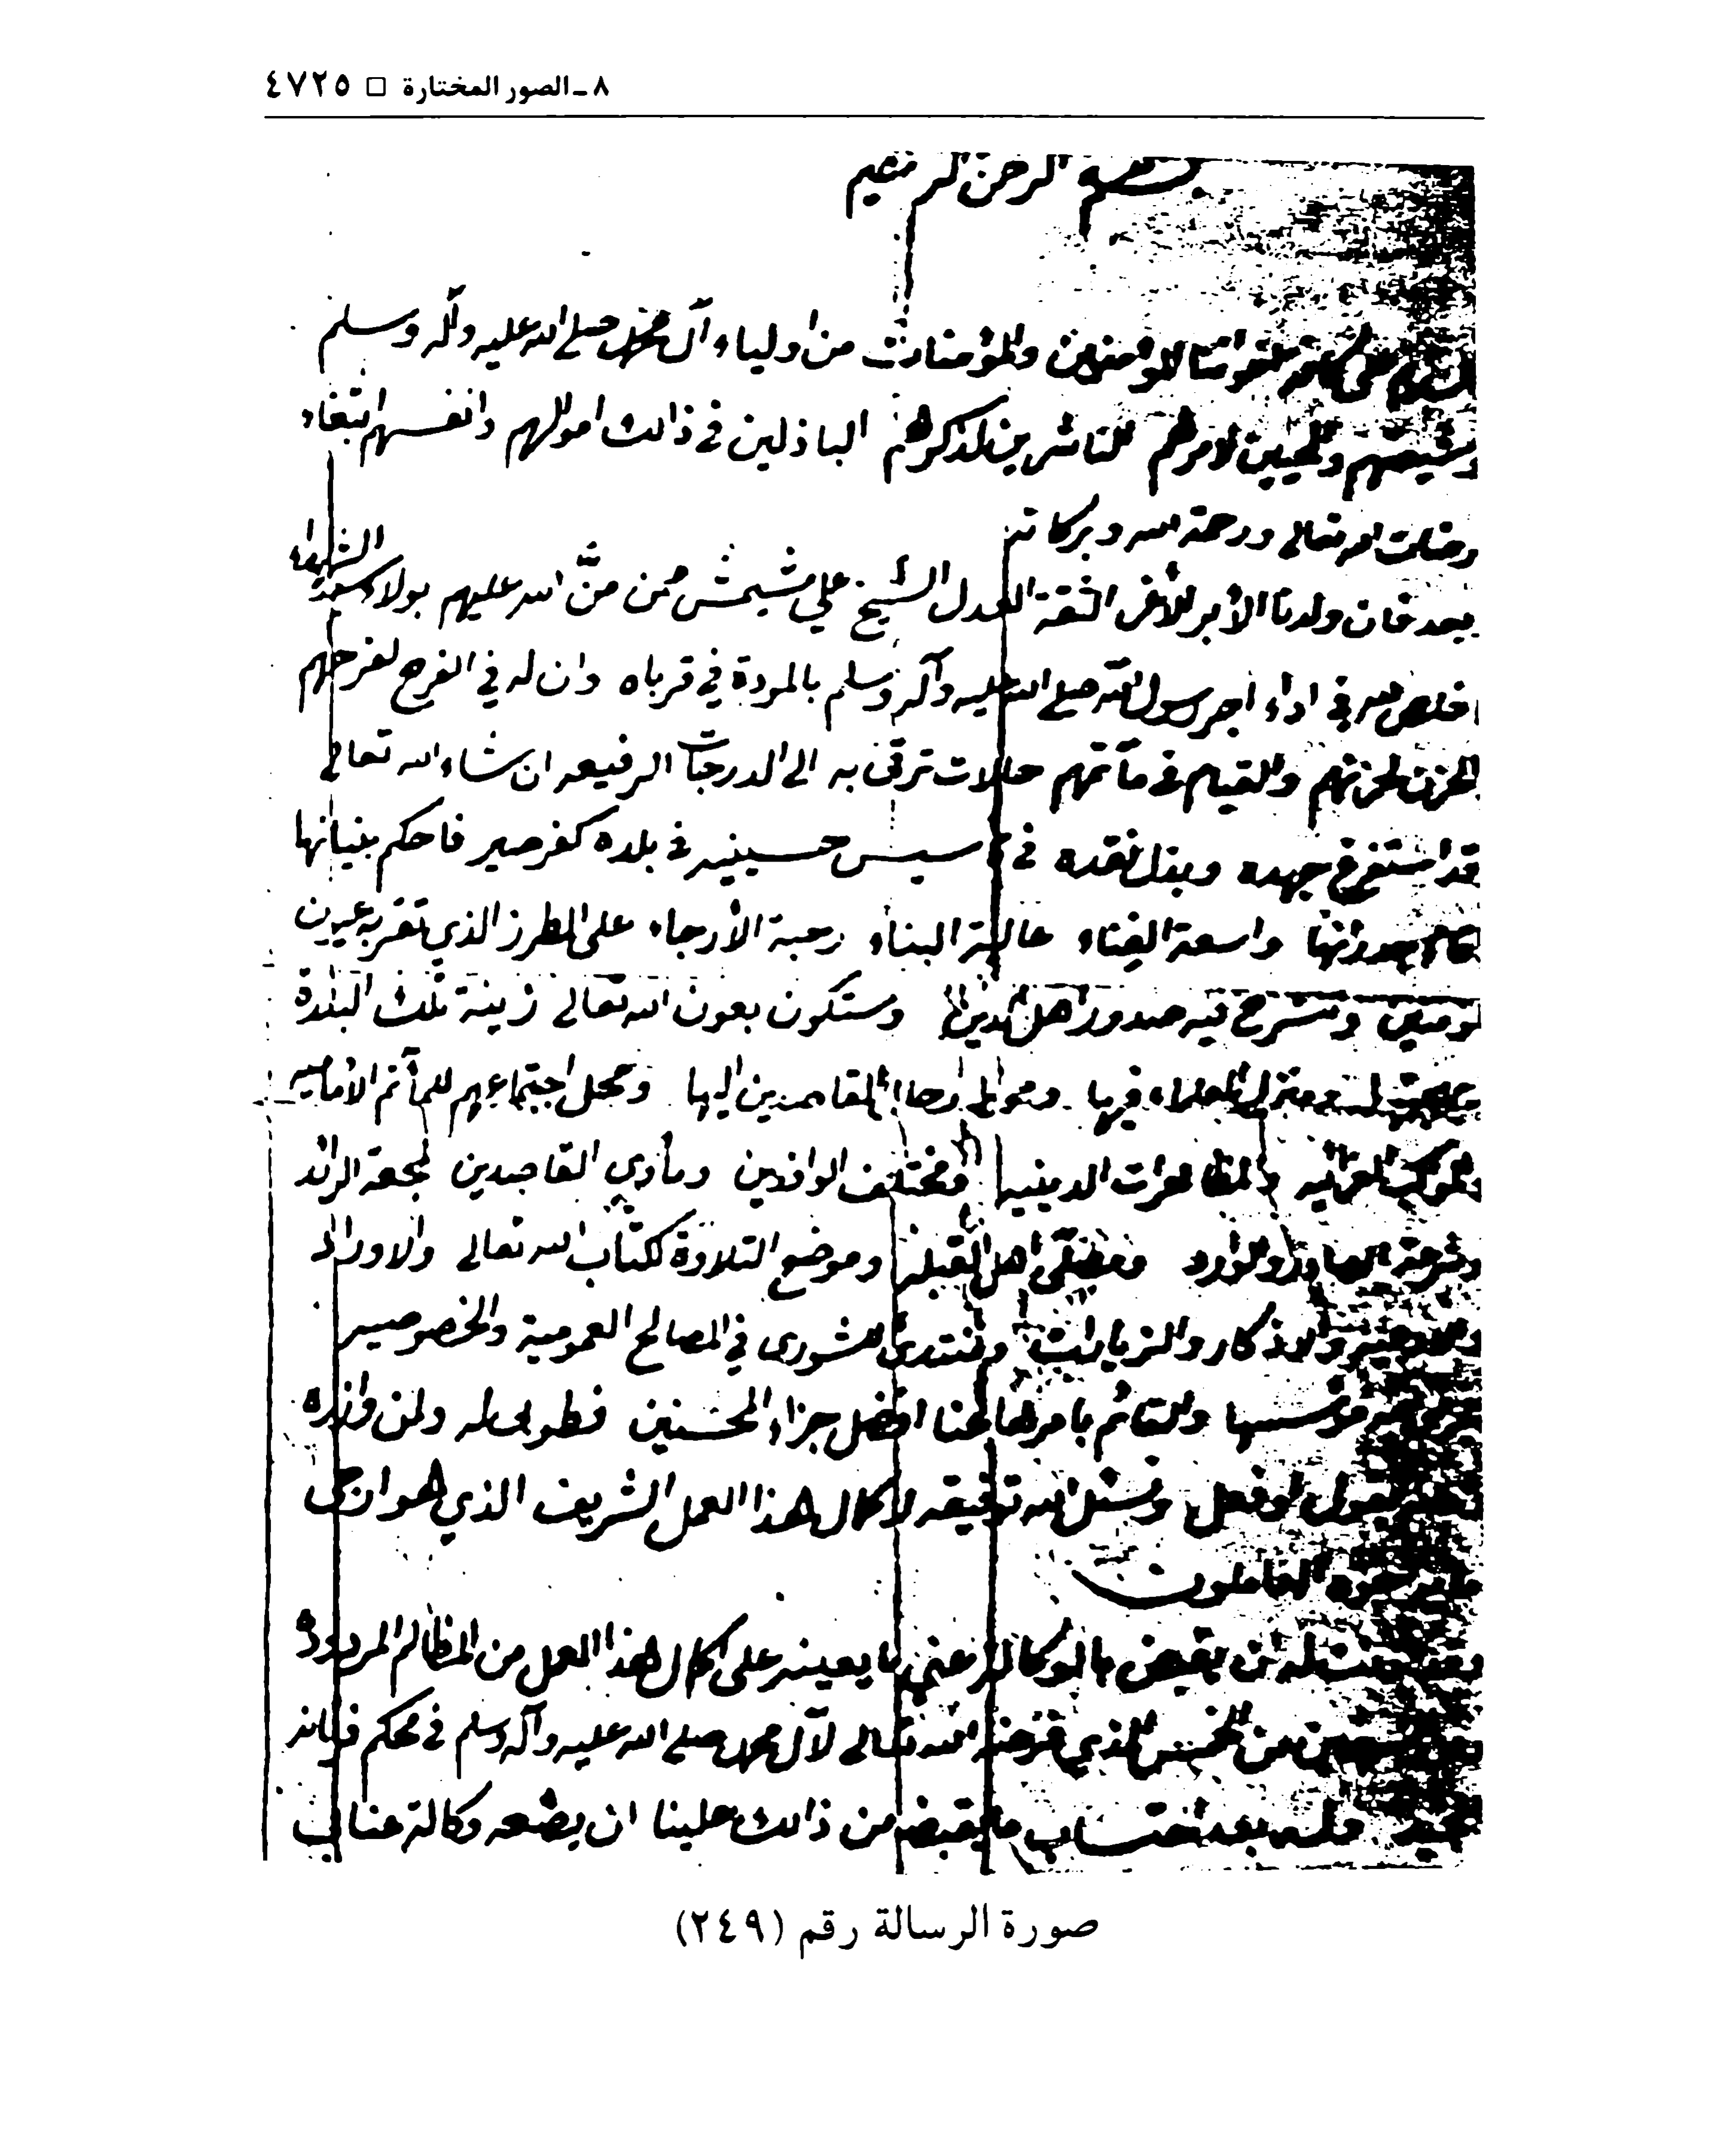 ٨ـ الصور المختارة □ ٤٧٢٥
بسم الله الرحمن الرحيم
السلام على كافة اخواننا المؤمنين والمؤمنات من اولياء آل محمد صلى الله عليه وآله وسلم
وشيعتهم والمحيين لامرهم الناشرين لذكرهم الباذلين في ذالك اموالهم وانفسهم ابتغاء
مرضات الله تعالى ورحمة الله وبركاته
وبعد فان ولدنا الأبر الأغر الثقة العدل الشيخ علي شميش ممن منَّ الله عليهم بولاء سيد الشهداء
اخلص لله في اداء أجر رسول الله صلى الله عليه وآله وسلم بالمودة في قرباه وان له في الفرح لفرحهم
والحزن لحزنهم والقيام في مآتمهم حالات ترقى به الى الدرجات الرفيعه ان شاء الله تعالى
وقد استفرغ جهده وبذل نقده في تأسيس حسينيه في بلده كفرصير فاحكم بنيانها
جدرانها واسعة الفناء عالية البناء رحبة الأرجاء على الطرز الذي تقر به عيون
المؤمنين وتنشرح فيه صدور اهل الدين وستكون بعون الله تعالى زينة تلك البلدة
ومنزل العلماء فيها القاصدين اليها ومحل اجتماعهم للمأتم الأماميه
والمواكب العزائيه والمظاهرات الدينيه ومختلف الوافدين ومأوى القاصدين نجعة الرائد
وشرعة الصادر والوارد وملتقى اهل القبله وموضع التلاوة لكتاب الله تعالى والاوراد
والادعيه والاذكار والزيارات ومنتدى للشورى في المصالح العمومية والخصوصيه
مؤسسها والقائم بامرها هنا افضل جزاء المحسنين فطوبى له ولمن وازره
بقول او فعل ونسئل الله توفيقه لاكمال هذا العمل الشريف الذي هو انجح
ما يرجوه العاملون
له ان يقبض بالوكالة عني ما يعينه على اكمال هذا العمل من المظالم المردوده
من الخمس الذي فرضه الله تعالى لآل محمد صلى الله عليه وآله وسلم في محكم فرقانه
المجيد وله بعد احتساب ما يقبضه من ذالك علينا ان يضعه وكالة عنا في
صورة الرسالة رقم (٢٤٩)